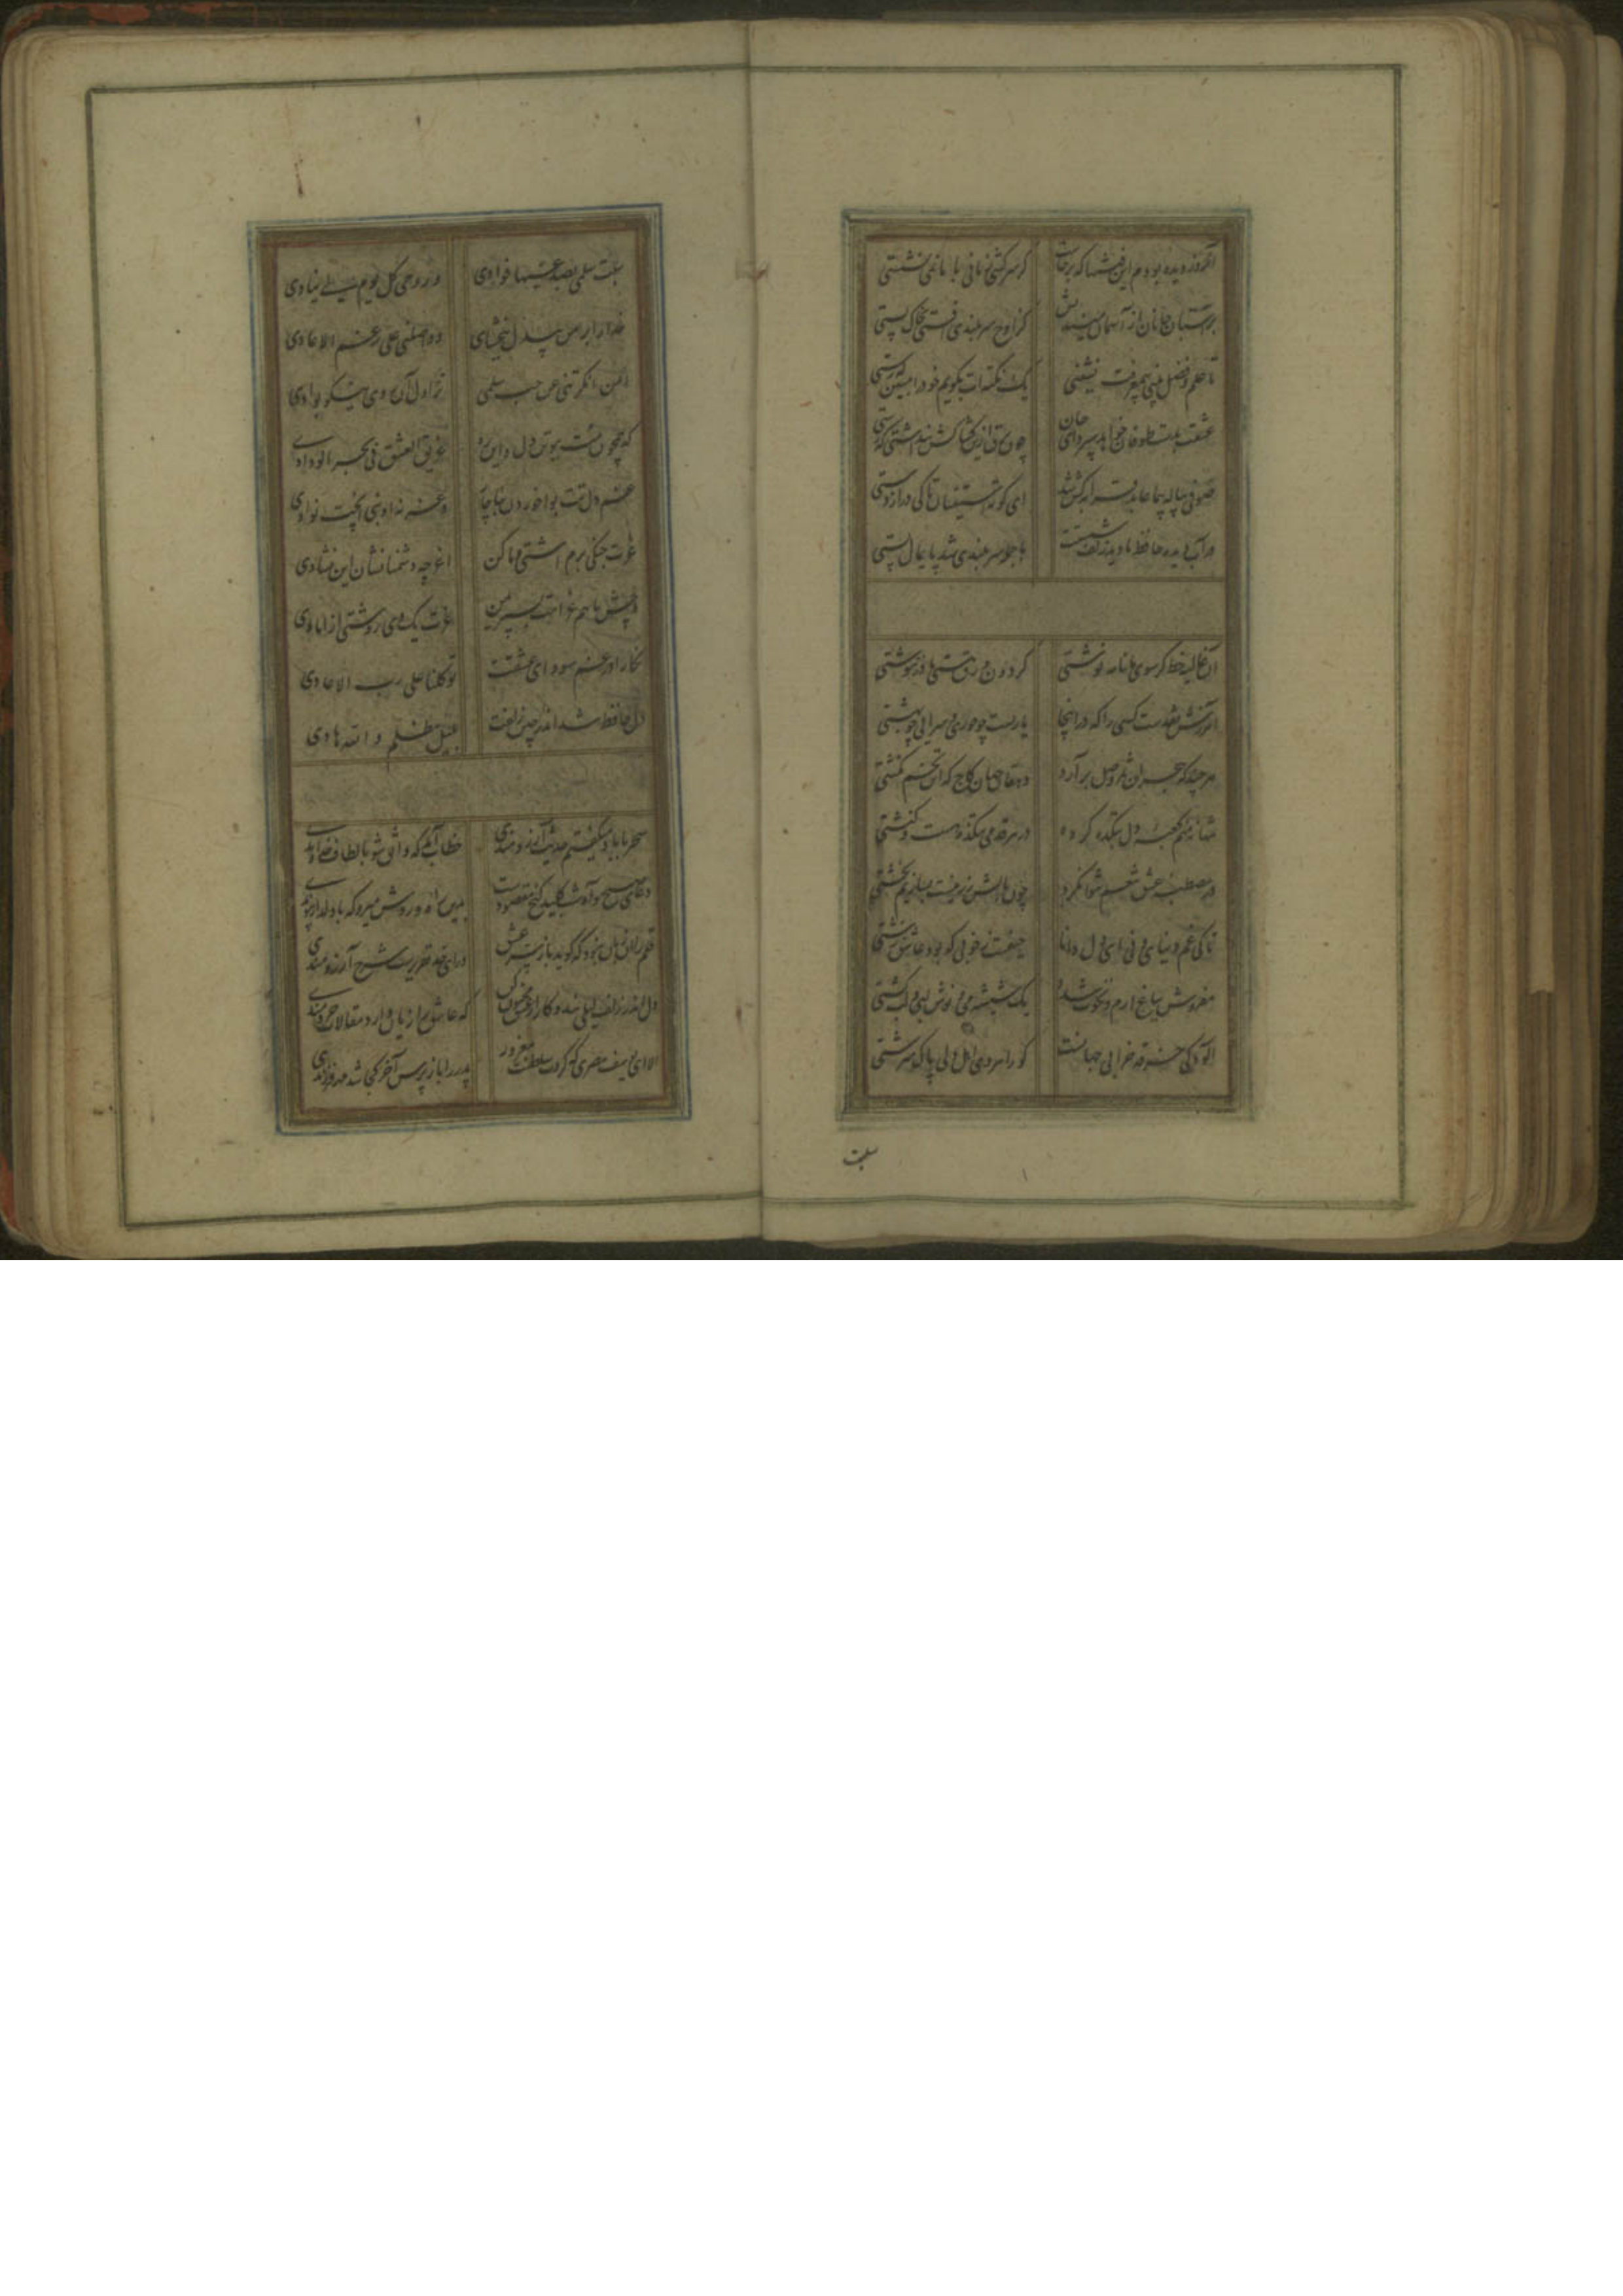 آنروز دیده بودم این فتنها که برخاست کز سرکشی زمانی با ما نمی نشستی
بر آستان جانان از آسمان میندیش کز اوج سربلندی افتی بخاک پستی
تا علم و فضل بینی بیمعرفت نشینی یک نکته ات بگویم خود را مبین که رستی
عشقت بدست طوفان خواهد سپرد ای جان چون برق ازین کشاکش پنداشتی که جستی
صوفی پیاله پیما حافظ قرابه کش شد ای کوته آستینان تا کی درازدستی
در آب دیده حافظ تا دید زلف شستت با جمله سربلندی شد پایمال پستی
آن غالیه خط گر سوی ما نامه نوشتی گردون ورق هستی ما در ننوشتی
آمرزش نقدست کسی را که در اینجا یاریست چو حوری و سرایی چو بهشتی
هر چند که هجران ثمر وصل برآرد دهقان جهان کاج که این تخم نکشتی
تنها نه منم کعبه دل بتکده کرده در هر قدمی بتکده هست و کنشتی
در مصطبه عشق تنعم نتوان کرد چون بالش زر نیست بسازیم بخشتی
تا کی غم دنیای دنی ای دل دانا حیفست ز خوبی که بود عاشق زشتی
مفروش بباغ ارم و نخوت شداد یک شیشه می و نوش لبی و لب کشتی
آلودگی خرقه خرابی جهانست کو راهروی اهل دلی پاک سرشتی
سبت
سبت سلمی بصدغیها فوادی و روحی کل یوم لی ینادی
خدا را بر من بیدل ببخشای و واصلنی علی رغم الاعادی
امن انکرتنی عن حب سلمی تزاول آن روی نیکو بوادی
که همچون مت ببوتن دل و ای ره غریق العشق فی بحر الودادی
غم دل تت بواخوردن بناچار و غر نه او بنی آنچت نوادی
غرت جنگی برم آشتی وا کن اغر چه دشمنانشان این نشادی
نگارا در غم سودای عشقت توکلنا علی رب الاعادی
دل حافظ شد اندر چین زلفت بلیل مظلم والله هادی
سحر با باد میگفتم حدیث آرزومندی خطاب آمد که واثق شو بالطاف خداوندی
دعای صبح و آه شب کلید گنج مقصودست بدین راه و روش میرو که با دلدار پیوندی
قلم را آن زبان نبود که سر عشق گوید باز ورای حد تقریرست شرح آرزومندی
دل اندر زلف لیلی بند و کار از عشق مجنون کن که عاشق را زیان دارد مقالات خردمندی
الا ای یوسف مصری که کردت سلطنت مغرور پدر را باز پرس آخر کجا شد مهر فرزندی